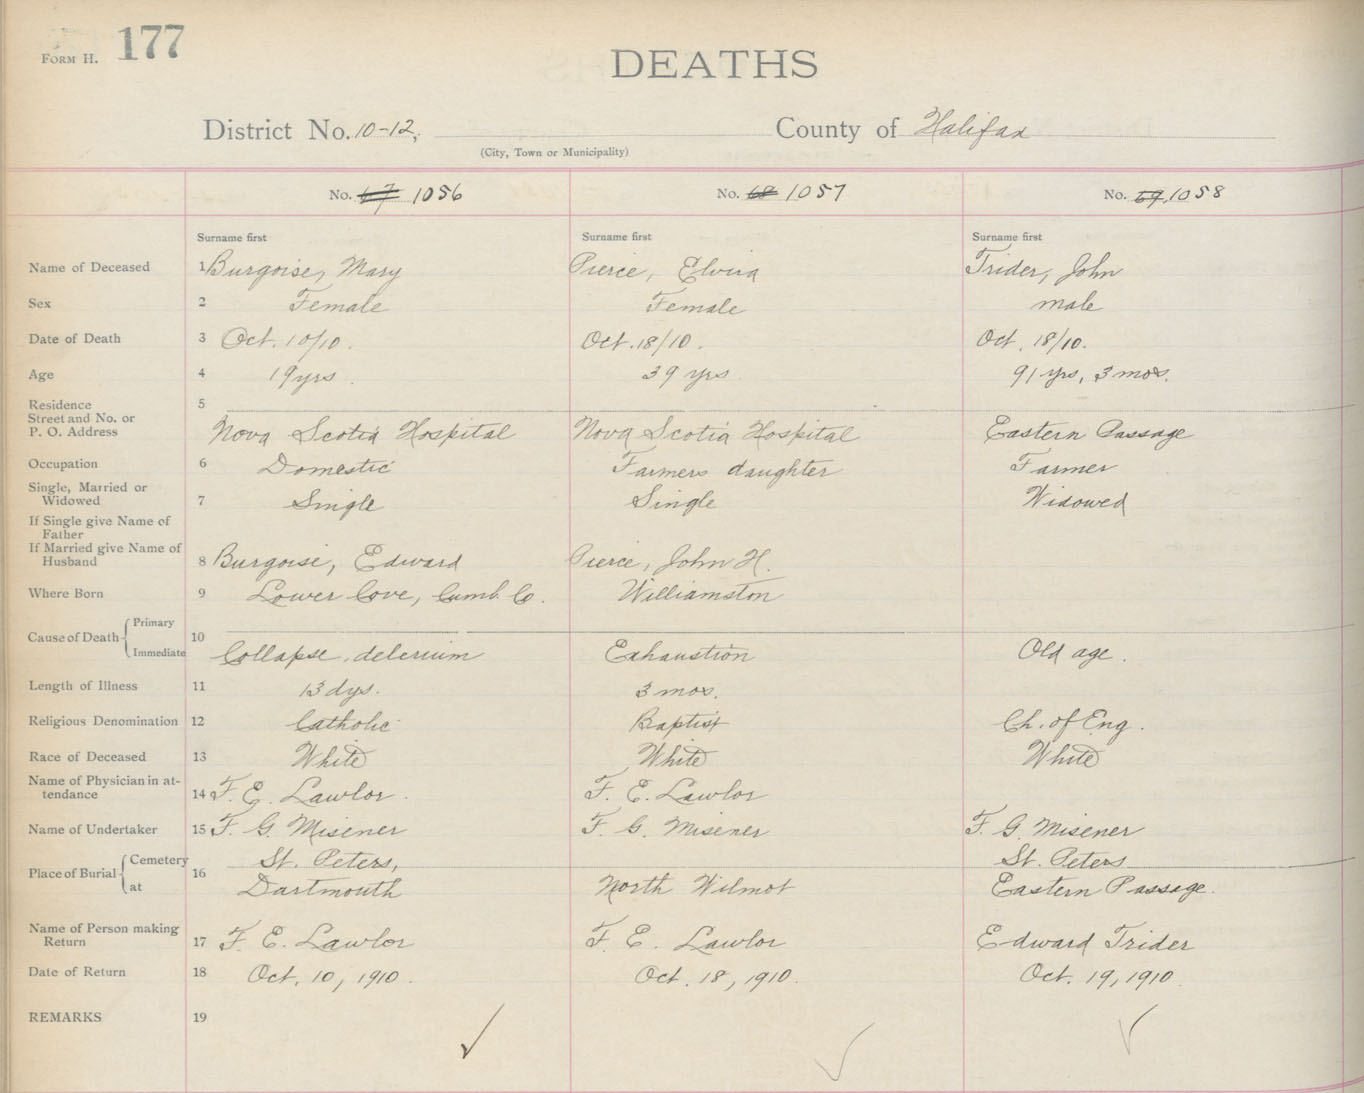 FORM H. 177
DEATHS
District No. 10-12, County of Halifax
(City, Town or Municipality)
No. 67 1056 No. 68 1057 No. 69 1058
Surname first Surname first Surname first
Name of Deceased 1 Burgoise, Mary Pierce, Elvira Trider, John
Sex 2 Female Female male
Date of Death 3 Oct. 10/10. Oct. 18/10. Oct. 18/10.
Age 4 19 yrs. 39 yrs 91 yrs, 3 mos.
Residence 5
Street and No. or
P. O. Address Nova Scotia Hospital Nova Scotia Hospital Eastern Passage
Occupation 6 Domestic Farmers daughter Farmer
Single, Married or
Widowed 7 Single Single Widowed
If Single give Name of
Father
If Married give Name of
Husband 8 Burgoise, Edward Pierce, John H.
Where Born 9 Lower Cove, Cumb. Co. Williamston
Cause of Death Primary 10
Immediate Collapse, delerium Exhaustion Old age.
Length of Illness 11 13 dys. 3 mos.
Religious Denomination 12 Catholic Baptist Ch. of Eng.
Race of Deceased 13 White White White
Name of Physician in at-
tendance 14 F. E. Lawlor. F. E. Lawlor
Name of Undertaker 15 F. G. Misener F. G. Misener F. G. Misener
Place of Burial Cemetery 16 St. Peters, St. Peters
at Dartmouth North Wilmot Eastern Passage.
Name of Person making
Return 17 F. E. Lawlor F. E. Lawlor Edward Trider
Date of Return 18 Oct. 10, 1910. Oct. 18, 1910. Oct. 19, 1910
REMARKS 19